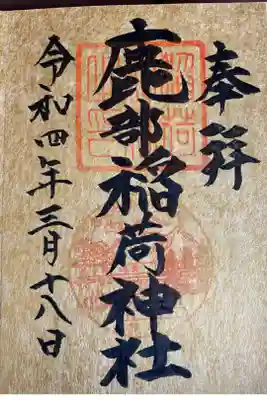 奉拝
鹿部稲荷神社
令和四年三月十八日